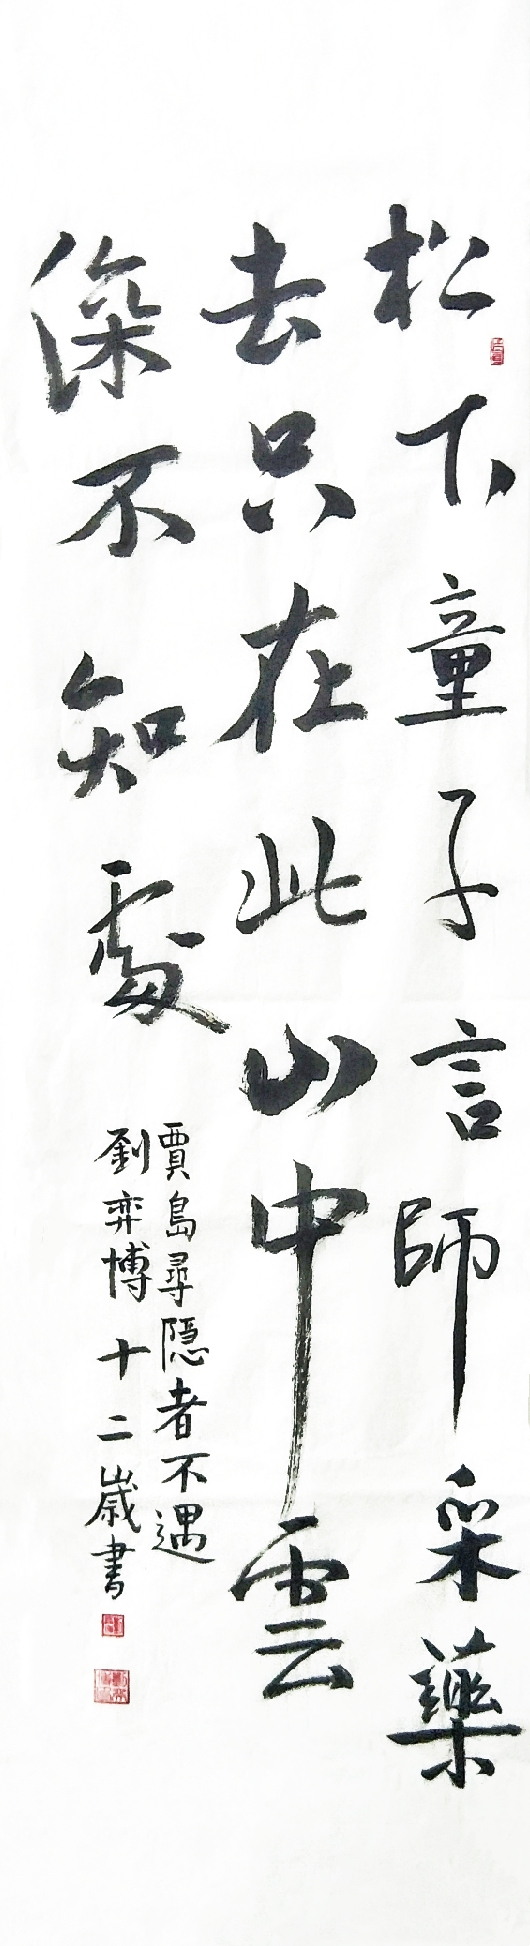 松下童子言師采藥
去只在此山中雲
深不知處
賈島尋隱者不遇
劉弈博十二歲書